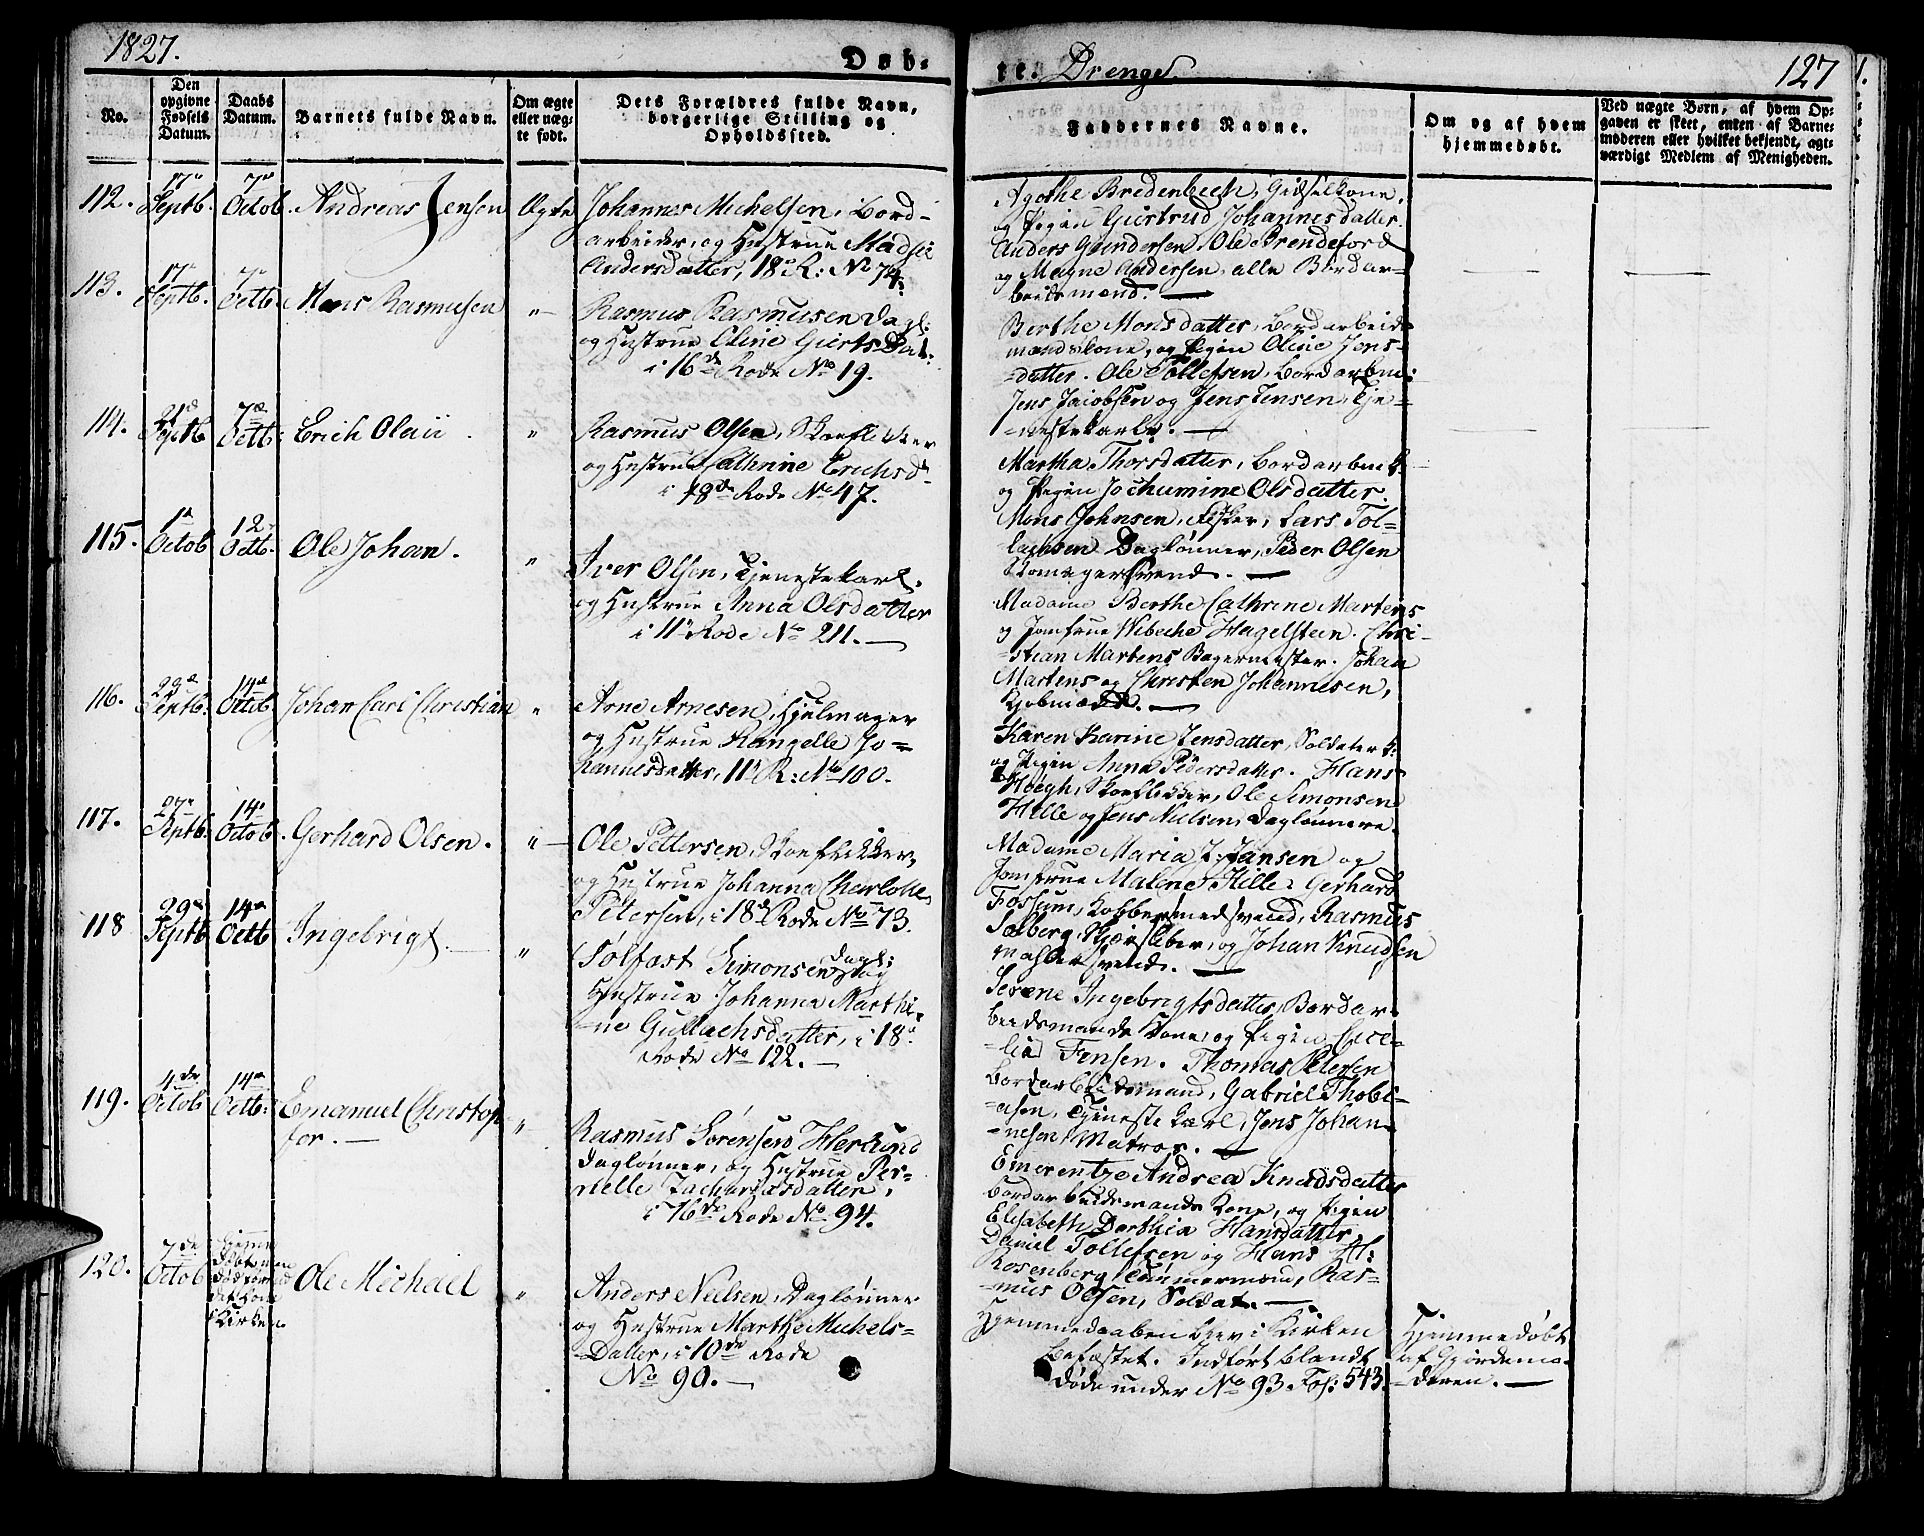 1827.
Døb-
te. Drenge.
127
No.
Den opgivne Fødsels Datum.
Daabs Datum.
Barnets fulde Navn.
Om ægte eller uægte født.
Dets Forældres fulde Navn, borgerlige Stilling og Opholdssted.
Faddernes Navne.
Om og af hvem hjemmedøbt.
Ved uægte Børn, af hvem Opgaven er skeet, enten af Barnemoderen eller hvilket bekjendt, agtværdigt Medlem af Menigheden.
112.
17de Septb.
7de Octob.
Andreas Jensen
Ægte
Johannes Michelsen, Bord-
arbeider, og Hustrue Madsii
Andersdatter, 18de R: No 74.
Agothe Bredenbech, Gidselkone,
og Pigen Giertrud Johannesdatter.
Anders Gundersen, Ole Brendeford
og Magne Andersen, alle Bordar-
beidsmænd.
113.
17de Septb.
7de Octb.
Mons Rasmusen
"
Rasmus Rasmusen Dagl:
og Hustrue Eline Giertsdat:
i 16de Rode No 19.
Berthe Monsdatter, Bordarbeids
mandskone, og Pigen Oline Jens-
datter. Ole Tollefsen, Bordarbm:
Jens Jacobsen og Jens Jensen, Tje-
nestekarle.
114.
21de Septb
7de Octb:
Erich Olaii.
"
Rasmus Olsen, Skoeflikker
og Hustrue Cathrine Erichsd.
i 18de Rode No 47.
Martha Thorsdatter, Bordarbm k.
og Pigen Jochumine Olsdatter.
Mons Johnsen, Fisker, Lars Tol-
lachsen Daglønner, Peder Olsen
Skomagersvend.
115.
1te Octob
12 Octb.
Ole Johan.
"
Iver Olsen, Tjenestekarl.
og Hustrue Anna Olsdatter
i 11te Rode No 211.
Madame Berthe Cathrine Martens
og Jomfrue Wibeche Hagelsteen. Chri-
stian Martens Bagermester. Johan
Martens og Christen Johannesen,
Kjøbmænd.
116.
29de Septb.
14de Octb
Johan Carl Christian
"
Arne Arnesen, Hjulmager
og Hustrue Rangelle Jo-
hannesdatter, 11te R: No 100.
Karen Karine Jensdatter, Soldater k:
og Pigen Anna Pedersdatter. Hans
Høegh, Skoeflikker, Ole Simonsen
Hille og Jens Nielsen, Daglønnere.
117.
27de Septb.
14de Octob.
Gerhard Olsen.
"
Ole Pettersen, Skoeflikker,
og Hustrue Johanna Charlotte
Petersen, i 18de Rode No 73.
Madame Maria J. Jansen og
Jomfrue Malene Hille, Gerhard
Fossum, Kobbersmedsvend, Rasmus
Solberg, Skjærsliber, og Johan Knudsen
Malersvend.
118
29de Septb
14de Octb
Ingebrigt
"
Tolfast Simonsen Dagl: og
Hustrue Johanna Marthi-
ne Gullachsdatter, i 18de
Rode No 122.
Serene Ingebrigtsdatter, Bordar-
beidsmands Kone, og Pigen Cece-
lia Jensen. Thomas Petersen
Bordarbeidsmand, Gabriel Thobi-
asen, Tjenestekarl, Jens Johan-
nesen Matros.
119.
4de Octob
14de Octb:
Emanuel Christop
for.
"
Rasmus Sørensen Herlund
Daglønner, og Hustrue Per-
nelle Zachariasdatter,
i 16de Rode No 94.
Emerentze Andrea Knudsdatter
Bordarbeidsmands Kone, og Pigen
Elisabeth Dorthia Hansdatter,
Daniel Tollefsen og Hans H:
Rosenberg Tømmermænd, Ras-
mus Olsen, Soldat.
120.
7de Octob
Hjemme
døbt men
død
i Kirken
Ole Michael
"
Anders Nielsen, Daglønner
og Hustrue Marthe Michels-
Datter, i 10de Rode
No 90.
Hjemmedaaben blev i Kirken
befæstet. Indført blandt
døde under No 93. Fol: 543.
Hjemmedøbt
af Gjordemo-
deren.